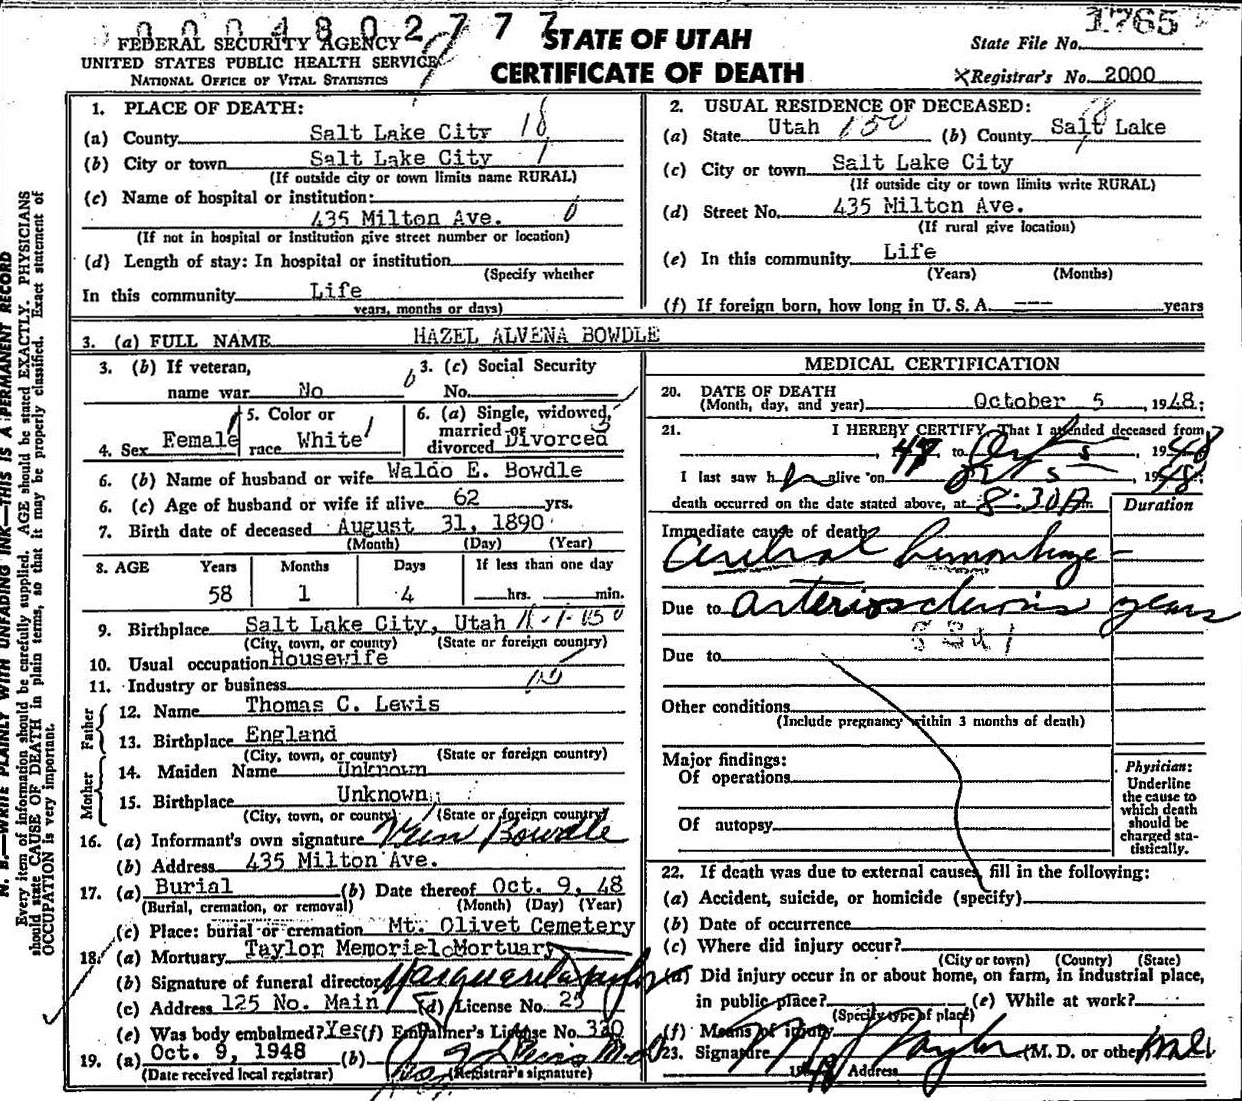 0004802777
1765
FEDERAL SECURITY AGENCY
UNITED STATES PUBLIC HEALTH SERVICE
NATIONAL OFFICE OF VITAL STATISTICS
STATE OF UTAH
CERTIFICATE OF DEATH
State File No.
Registrar's No. 2000
1. PLACE OF DEATH:
(a) County Salt Lake City 18
(b) City or town Salt Lake City 1
(If outside city or town limits name RURAL)
(c) Name of hospital or institution:
435 Milton Ave. 0
(If not in hospital or institution give street number or location)
(d) Length of stay: In hospital or institution
(Specify whether
In this community Life
years, months or days)
2. USUAL RESIDENCE OF DECEASED:
(a) State Utah (b) County Salt Lake
(c) City or town Salt Lake City
(If outside city or town limits write RURAL)
(d) Street No. 435 Milton Ave.
(If rural give location)
(e) In this community Life
(Years) (Months)
(f) If foreign born, how long in U.S.A. --- years
3. (a) FULL NAME HAZEL ALVENA BOWDLE
3. (b) If veteran,
name war No
3. (c) Social Security
No.
4. Sex Female
5. Color or
race White
6. (a) Single, widowed,
married or
divorced Divorced
6. (b) Name of husband or wife Waldo E. Bowdle
6. (c) Age of husband or wife if alive 62 yrs.
7. Birth date of deceased August 31, 1890
(Month) (Day) (Year)
8. AGE Years Months Days If less than one day
58 1 4 hrs. min.
9. Birthplace Salt Lake City, Utah
(City, town, or county) (State or foreign country)
10. Usual occupation Housewife
11. Industry or business
Father
12. Name Thomas C. Lewis
13. Birthplace England
(City, town, or county) (State or foreign country)
Mother
14. Maiden Name Unknown
15. Birthplace Unknown
(City, town, or county) (State or foreign country)
16. (a) Informant's own signature Bowdle
(b) Address 435 Milton Ave.
17. (a) Burial (b) Date thereof Oct. 9, 48
(Burial, cremation, or removal) (Month) (Day) (Year)
(c) Place: burial or cremation Mt. Olivet Cemetery
18. (a) Mortuary Taylor Memorial Mortuary
(b) Signature of funeral director Marguerite Taylor
(c) Address 125 No. Main (d) License No. 25
(e) Was body embalmed? Yes (f) Embalmer's License No. 320
19. (a) Oct. 9, 1948 (b)
(Date received local registrar) (Registrar's signature)
MEDICAL CERTIFICATION
20. DATE OF DEATH
(Month, day, and year) October 5, 1948:
21. I HEREBY CERTIFY, That I attended deceased from
47, to Oct 5, 1948
I last saw h alive on Oct 5, 1948;
death occurred on the date stated above, at 8:30A m.
Duration
Immediate cause of death
Cerebral hemorrhage
Due to arteriosclerosis years
Due to
Other conditions
(Include pregnancy within 3 months of death)
Major findings:
Of operations
Of autopsy
Physician:
Underline
the cause to
which death
should be
charged sta-
tistically.
22. If death was due to external causes, fill in the following:
(a) Accident, suicide, or homicide (specify)
(b) Date of occurrence
(c) Where did injury occur?
(City or town) (County) (State)
(d) Did injury occur in or about home, on farm, in industrial place,
in public place? (e) While at work?
(Specify type of place)
(f) Means of injury
23. Signature Taylor (M. D. or other)
Address
N. B.—WRITE PLAINLY WITH UNFADING INK—THIS IS A PERMANENT RECORD
Every item of information should be carefully supplied. AGE should be stated EXACTLY. PHYSICIANS
should state CAUSE OF DEATH in plain terms, so that it may be properly classified. Exact statement of
OCCUPATION is very important.